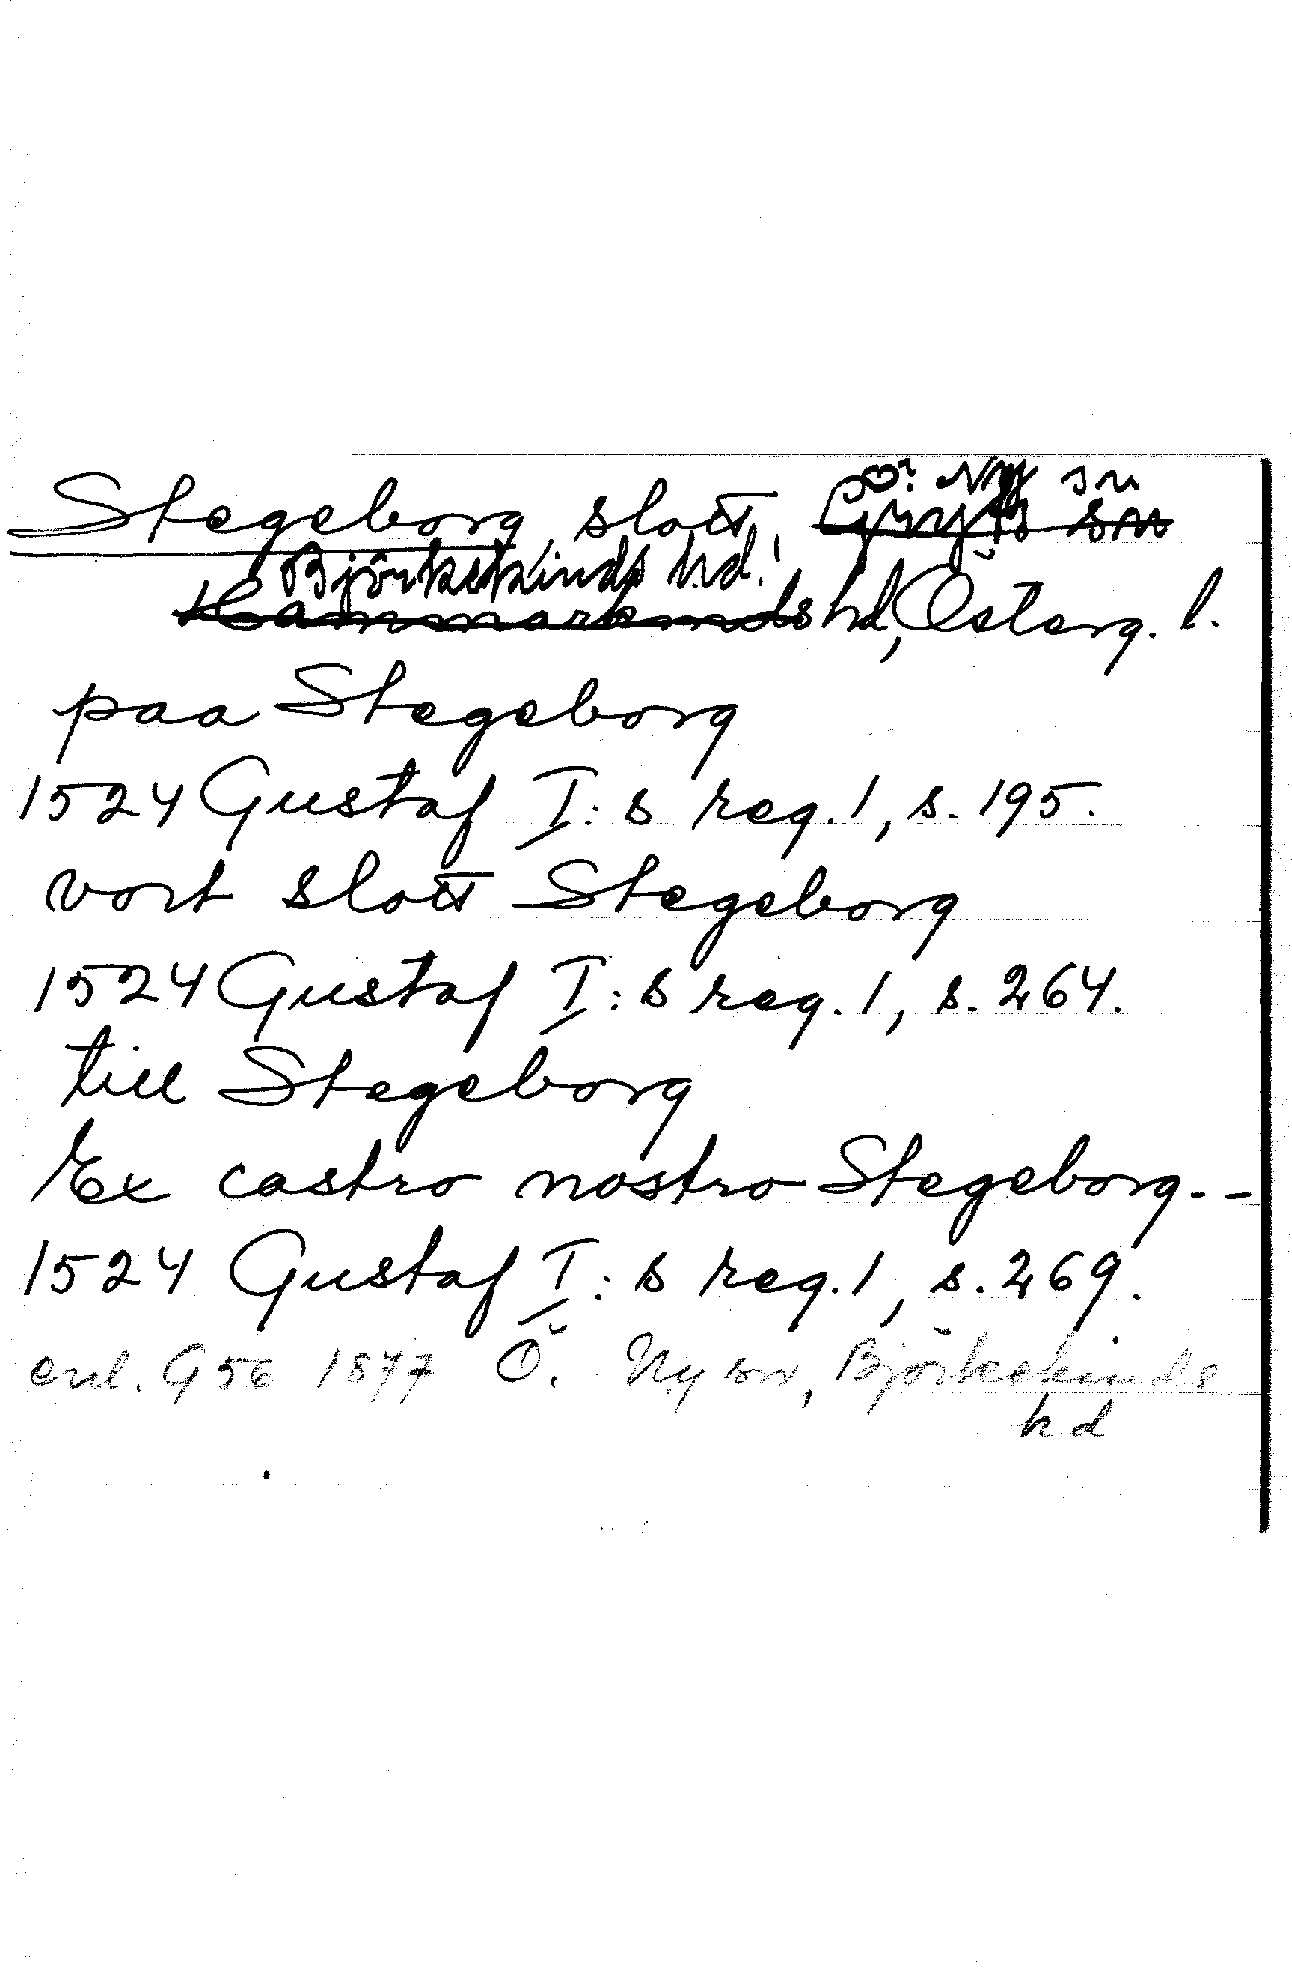 Ö. Ny sn
Stegeborg slott, Gryts sn
Björkekinds hd!
Hammarkinds hd, Österg. l.
paa Stegeborg
1524 Gustaf I:s reg. 1, s. 195.
vort slott Stegeborg
1524 Gustaf I:s reg. 1, s. 264.
till Stegeborg
Ex castro nostro Stegeborg. -
1524 Gustaf I:s reg. 1, s. 269.
enl. G 56 1877 Ö. Ny sn, Björkekinds
hd